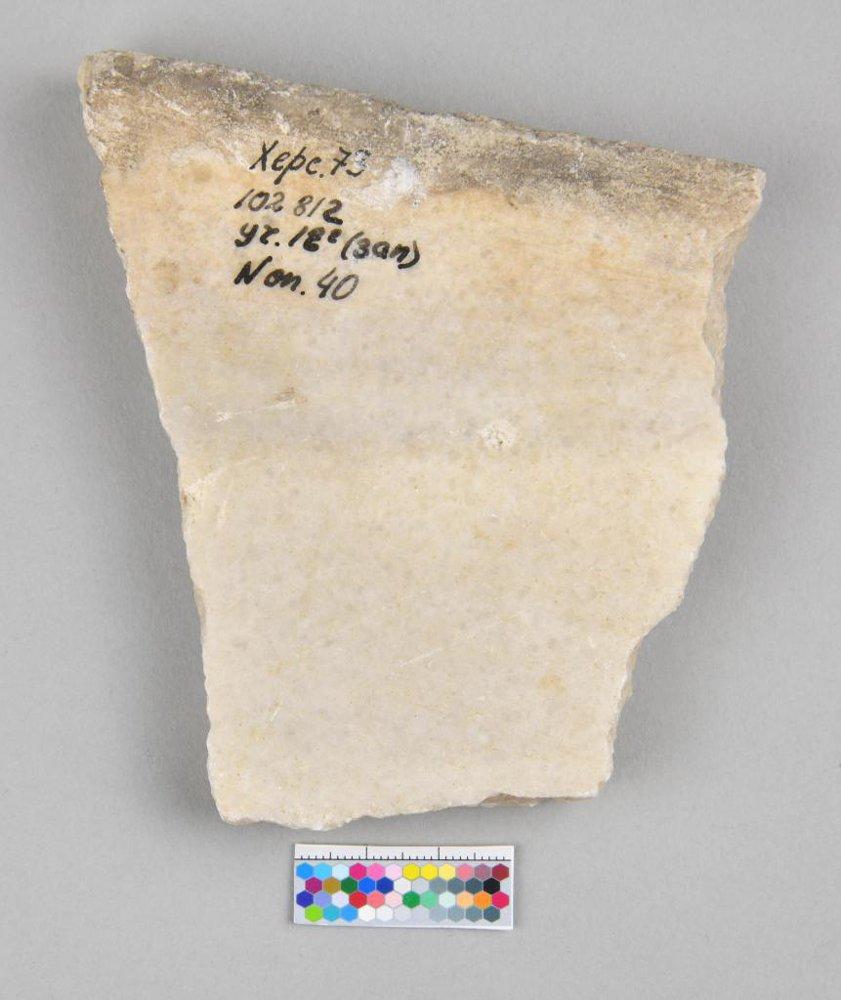 Херс. 73
102 812
уг. 18ᵉ (зап)
N оп. 40